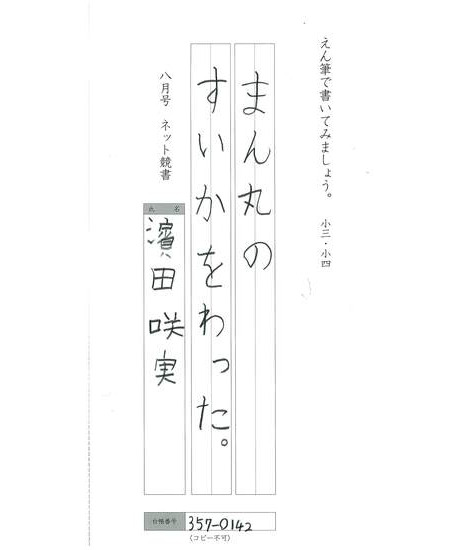 えん筆で書いてみましょう。 小三・小四
まん丸の
すいかをわった。
八月号 ネット競書
氏名
濱田咲実
台帳番号 357-0142
(コピー不可)